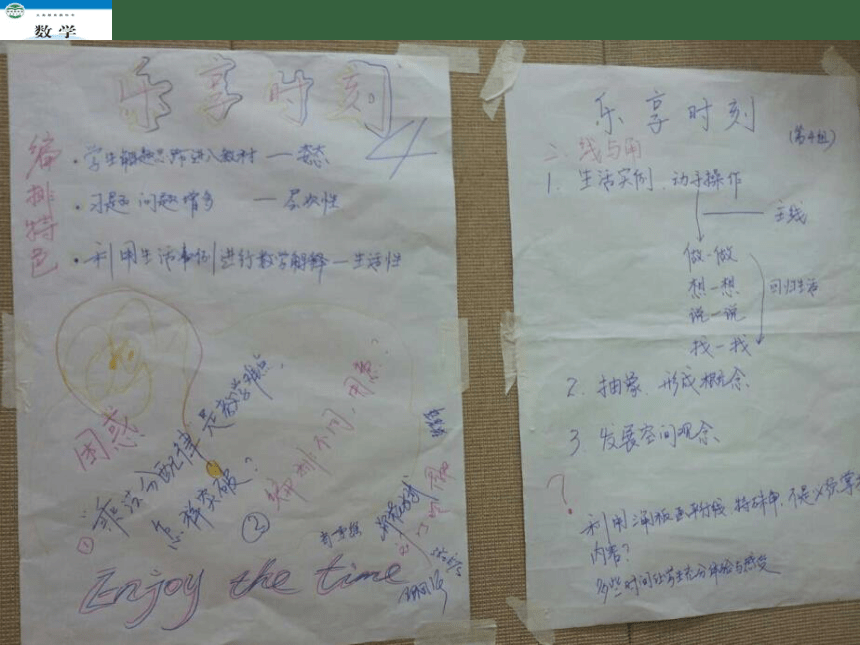 数学
乐享时刻
4
编排特色
·学生解题思路进入教材 —
·习题问题增多 — 层次性
·利用生活事例进行数学解释 — 生活性
困惑
①“乘法分配律”是教学难点,
怎样突破?
②编排不同,用意?
Enjoy the time
乐享时刻
(第4组)
二、线与角
1. 生活实例、动手操作
主线
做一做
想一想
说一说
找一找
回归生活
2. 抽象、形成概念
3. 发展空间观念
?
利用三角板画平行线、特殊角,不是必须掌
内容?
多些时间让学生充分体验与感受